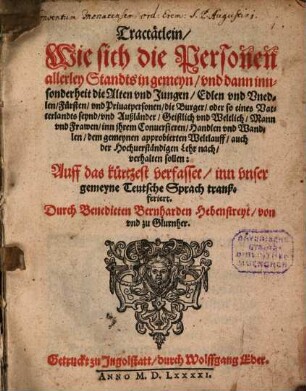 Conventus Monacensis ord. Erem: S. P. Augustini.
Tractätlein/
Wie sich die Personen
allerley Standts in gemeyn/ vnd dann inn-
sonderheit die Alten vnd Jungen/ Edlen vnd Vned-
len/ Fürsten/ vnd Priuatpersonen/ die Burger/ oder so eines Vat-
terlandts seynd/ vnd Außländer/ Geistlich vnd Weltlich/ Mann
vnd Frawen/ inn jhrem Conuersieren/ Handlen vnd Wand-
len/ dem gemeynen approbierten Weltlauff/ auch
der Hochuerständigen Lehr nach/
verhalten sollen:
Auff das kürtzest verfasset/ inn vnser
gemeyne Teutsche Sprach transz-
feriert.
Durch Benedicten Bernharden Hebenstreyt/ von
vnd zu Glurnher.
BAYERISCHE
STAATS-
BIBLIOTHEK
MUENCHEN
Getruckt zu Ingolstatt/ durch Wolffgang Eder.
ANNO M. D. LXXXXI.